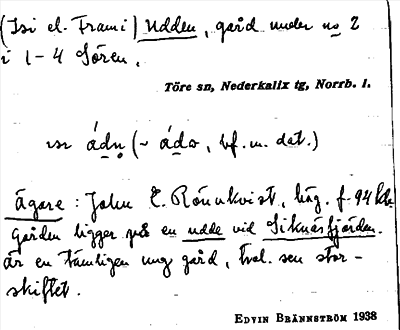 (Isi el. Frami) Udden, gård under no 2
i 1-4 Sören.
Töre sn, Nederkalix tg, Norrb. l.
ádn (~ ádo, bf. m. dat.)
Ägare: John E. Rönnkvist, häg. f. 94
Gården ligger på en udde vid Siknäsfjärden.
Är en tämligen ung gård, trol. sen stor-
skiftet.
EDVIN BRÄNNSTRÖM 1938